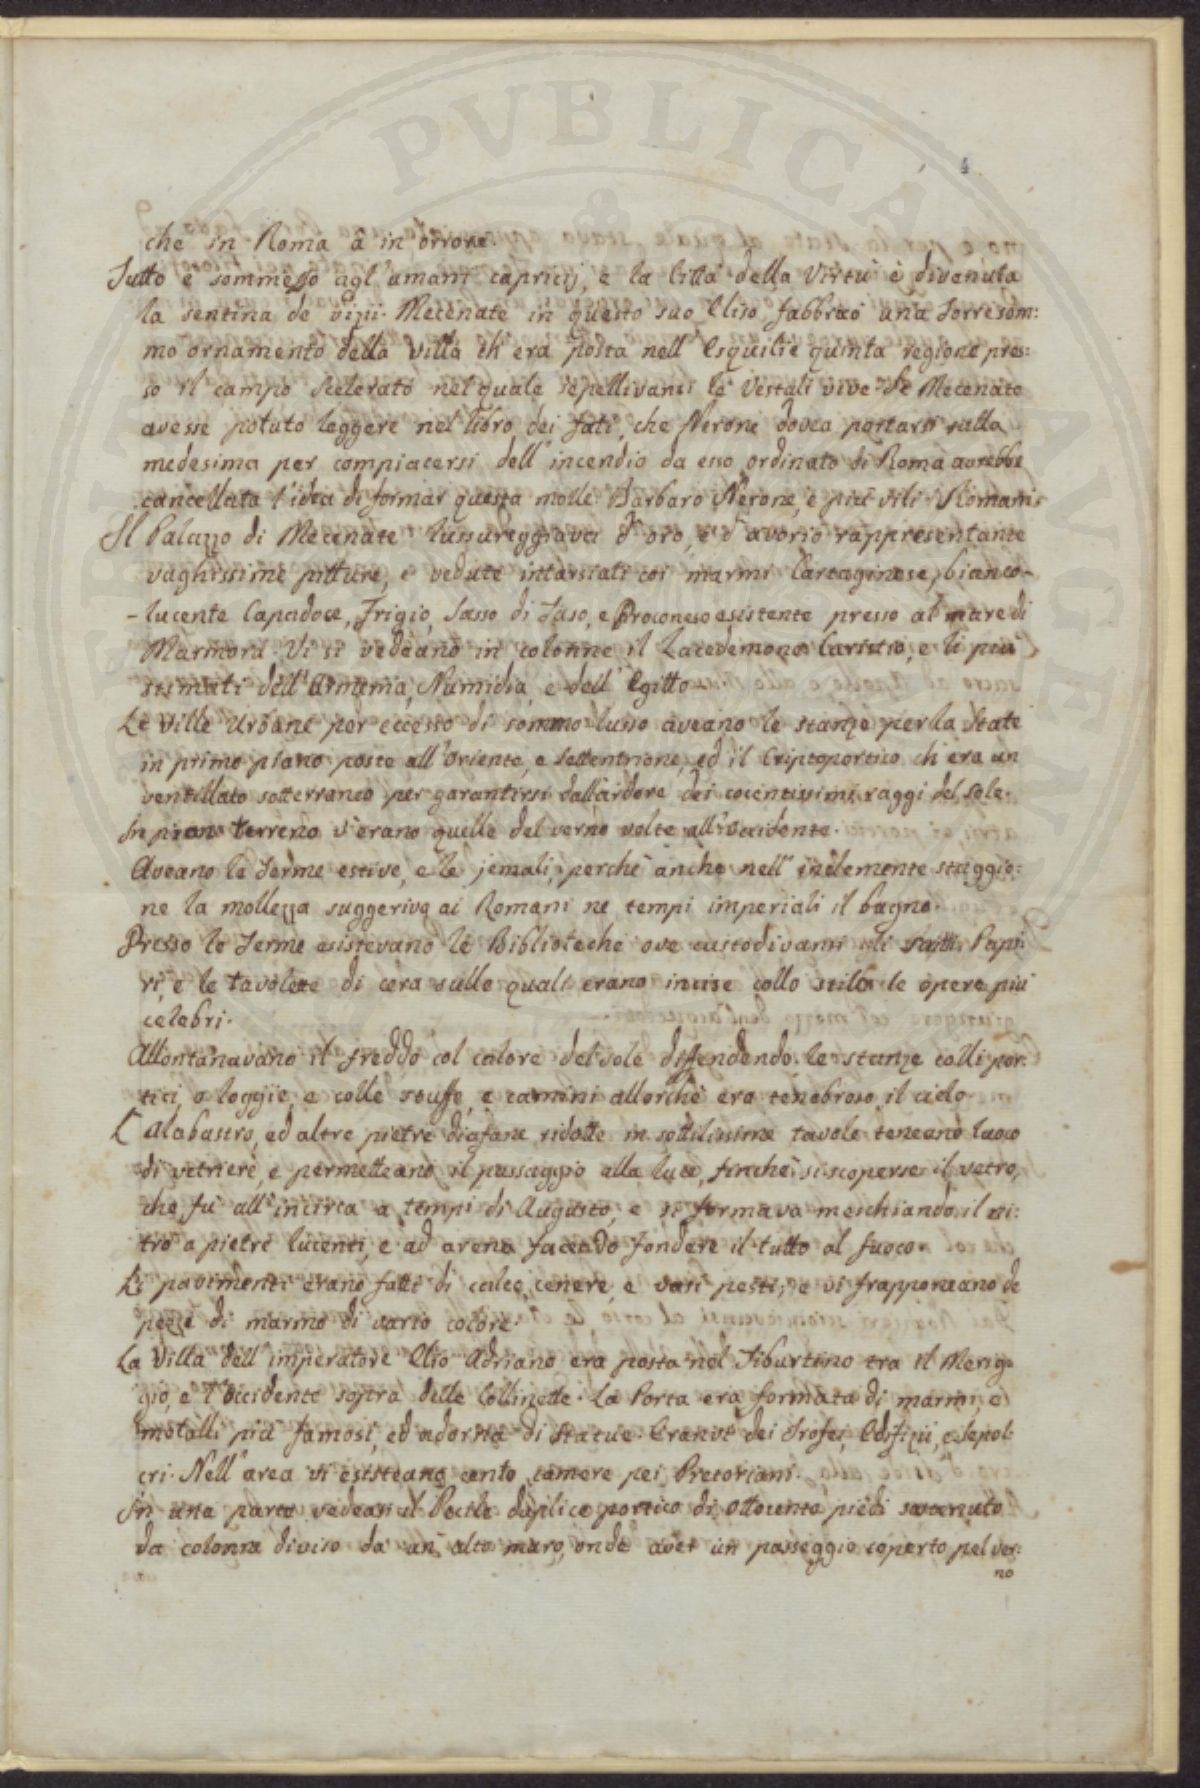 4
che in Roma à in orrore.
Tutto è sommesso agl'umani capricij, e la Città della Virtù è divenuta
la sentina de vizii. Mecenate in questo suo Eliso fabbricò una Torre som:
mo ornamento della Villa ch'era posta nell'Esquilie quinta regione pres:
so il campo Scelerato nel quale sepellivansi le Vestali vive. Se Mecenate
avesse potuto leggere nel libro dei fati, che Nerone dovea portarsi sulla
medesima per compiacersi dell'incendio da esso ordinato di Roma avrebbe
cancellata l'idea di formar questa molle. Barbaro Nerone, e più vili i Romani.
Il Palazzo di Mecenate lussureggiava d'oro, e d'avorio rappresentante
vaghissime pitture, e vedute intarsiati coi marmi Cartaginese, bianco-
-lucente Capadoce, Frigio, Sasso di Jaso, e Proconeso esistente presso al mare di
Marmora. Vi si vedeano in colonne il Lacedemone Caristio, e li più
stimati dell'Armenia, Numidia, e dell'Egitto.
Le Ville Urbane per eccesso di sommo lusso aveano le stanze per la State
in primo piano poste all'Oriente, e Settentrione, ed il Criptoportico ch'era un
ventillato sotterraneo per garantirsi dall'ardore dei cocentissimi raggi del Sole.
In pian terreno v'erano quelle del verno volte all'Occidente.
Aveano le Terme estive, e le jemali, perchè anche nell'inclemente staggio:
ne la mollezza suggeriva ai Romani ne tempi imperiali il bagno.
Presso le Terme esistevano le Biblioteche ove custodivansi gli Papi:
ri, e le tavolette di cera sulle quali erano incise collo stilo le opere più
celebri.
Allontanavano il freddo col calore del sole diffendendo le stanze colli por:
tici, o loggie, e colle stuffe, e camini allorchè era tenebroso il cielo.
L'Alabastro, ed altre pietre diafane ridotte in sottilissime tavole teneano luoco
di vetriere, e permetteano il passaggio alla luce, finchè si scoperse il vetro,
che fu all'incirca a tempi di Augusto, e si formava meschiando il ni:
tro a pietre lucenti, e ad arena facendo fondere il tutto al fuoco.
Li pavimenti erano fatti di calce, cenere, e vasi pesti, e vi frapponeano de
pezze di marmo di vario colore.
La Villa dell'imperatore Elio Adriano era posta nel Tiburtino tra il Merig:
gio, e l'Occidente sopra delle Collinette. La Porta era formata di marmi, e
metalli più famosi, ed adorna di Statue. Eranvi dei Trofei, Edifizii, e Sepol:
cri. Nell'area vi esisteano cento camere pei Pretoriani.
In una parte vedeasi il Pecile duplice portico di ottocento piedi sostenuto
da colonne diviso da un alto muro, onde aver un passeggio coperto pel ver:
no